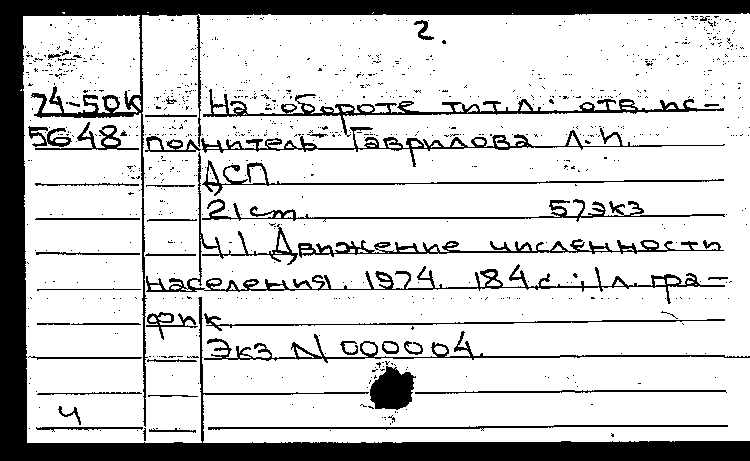 2.
74-50к На обороте тит.л.: отв. ис-
5648 полнитель Гаврилова Л.И.
ДСП.
21 ст. 57 экз
Ч.1. Движение численности
населения. 1974. 184 с.; 1 л. гра-
фик.
Экз. N 000004.
ч